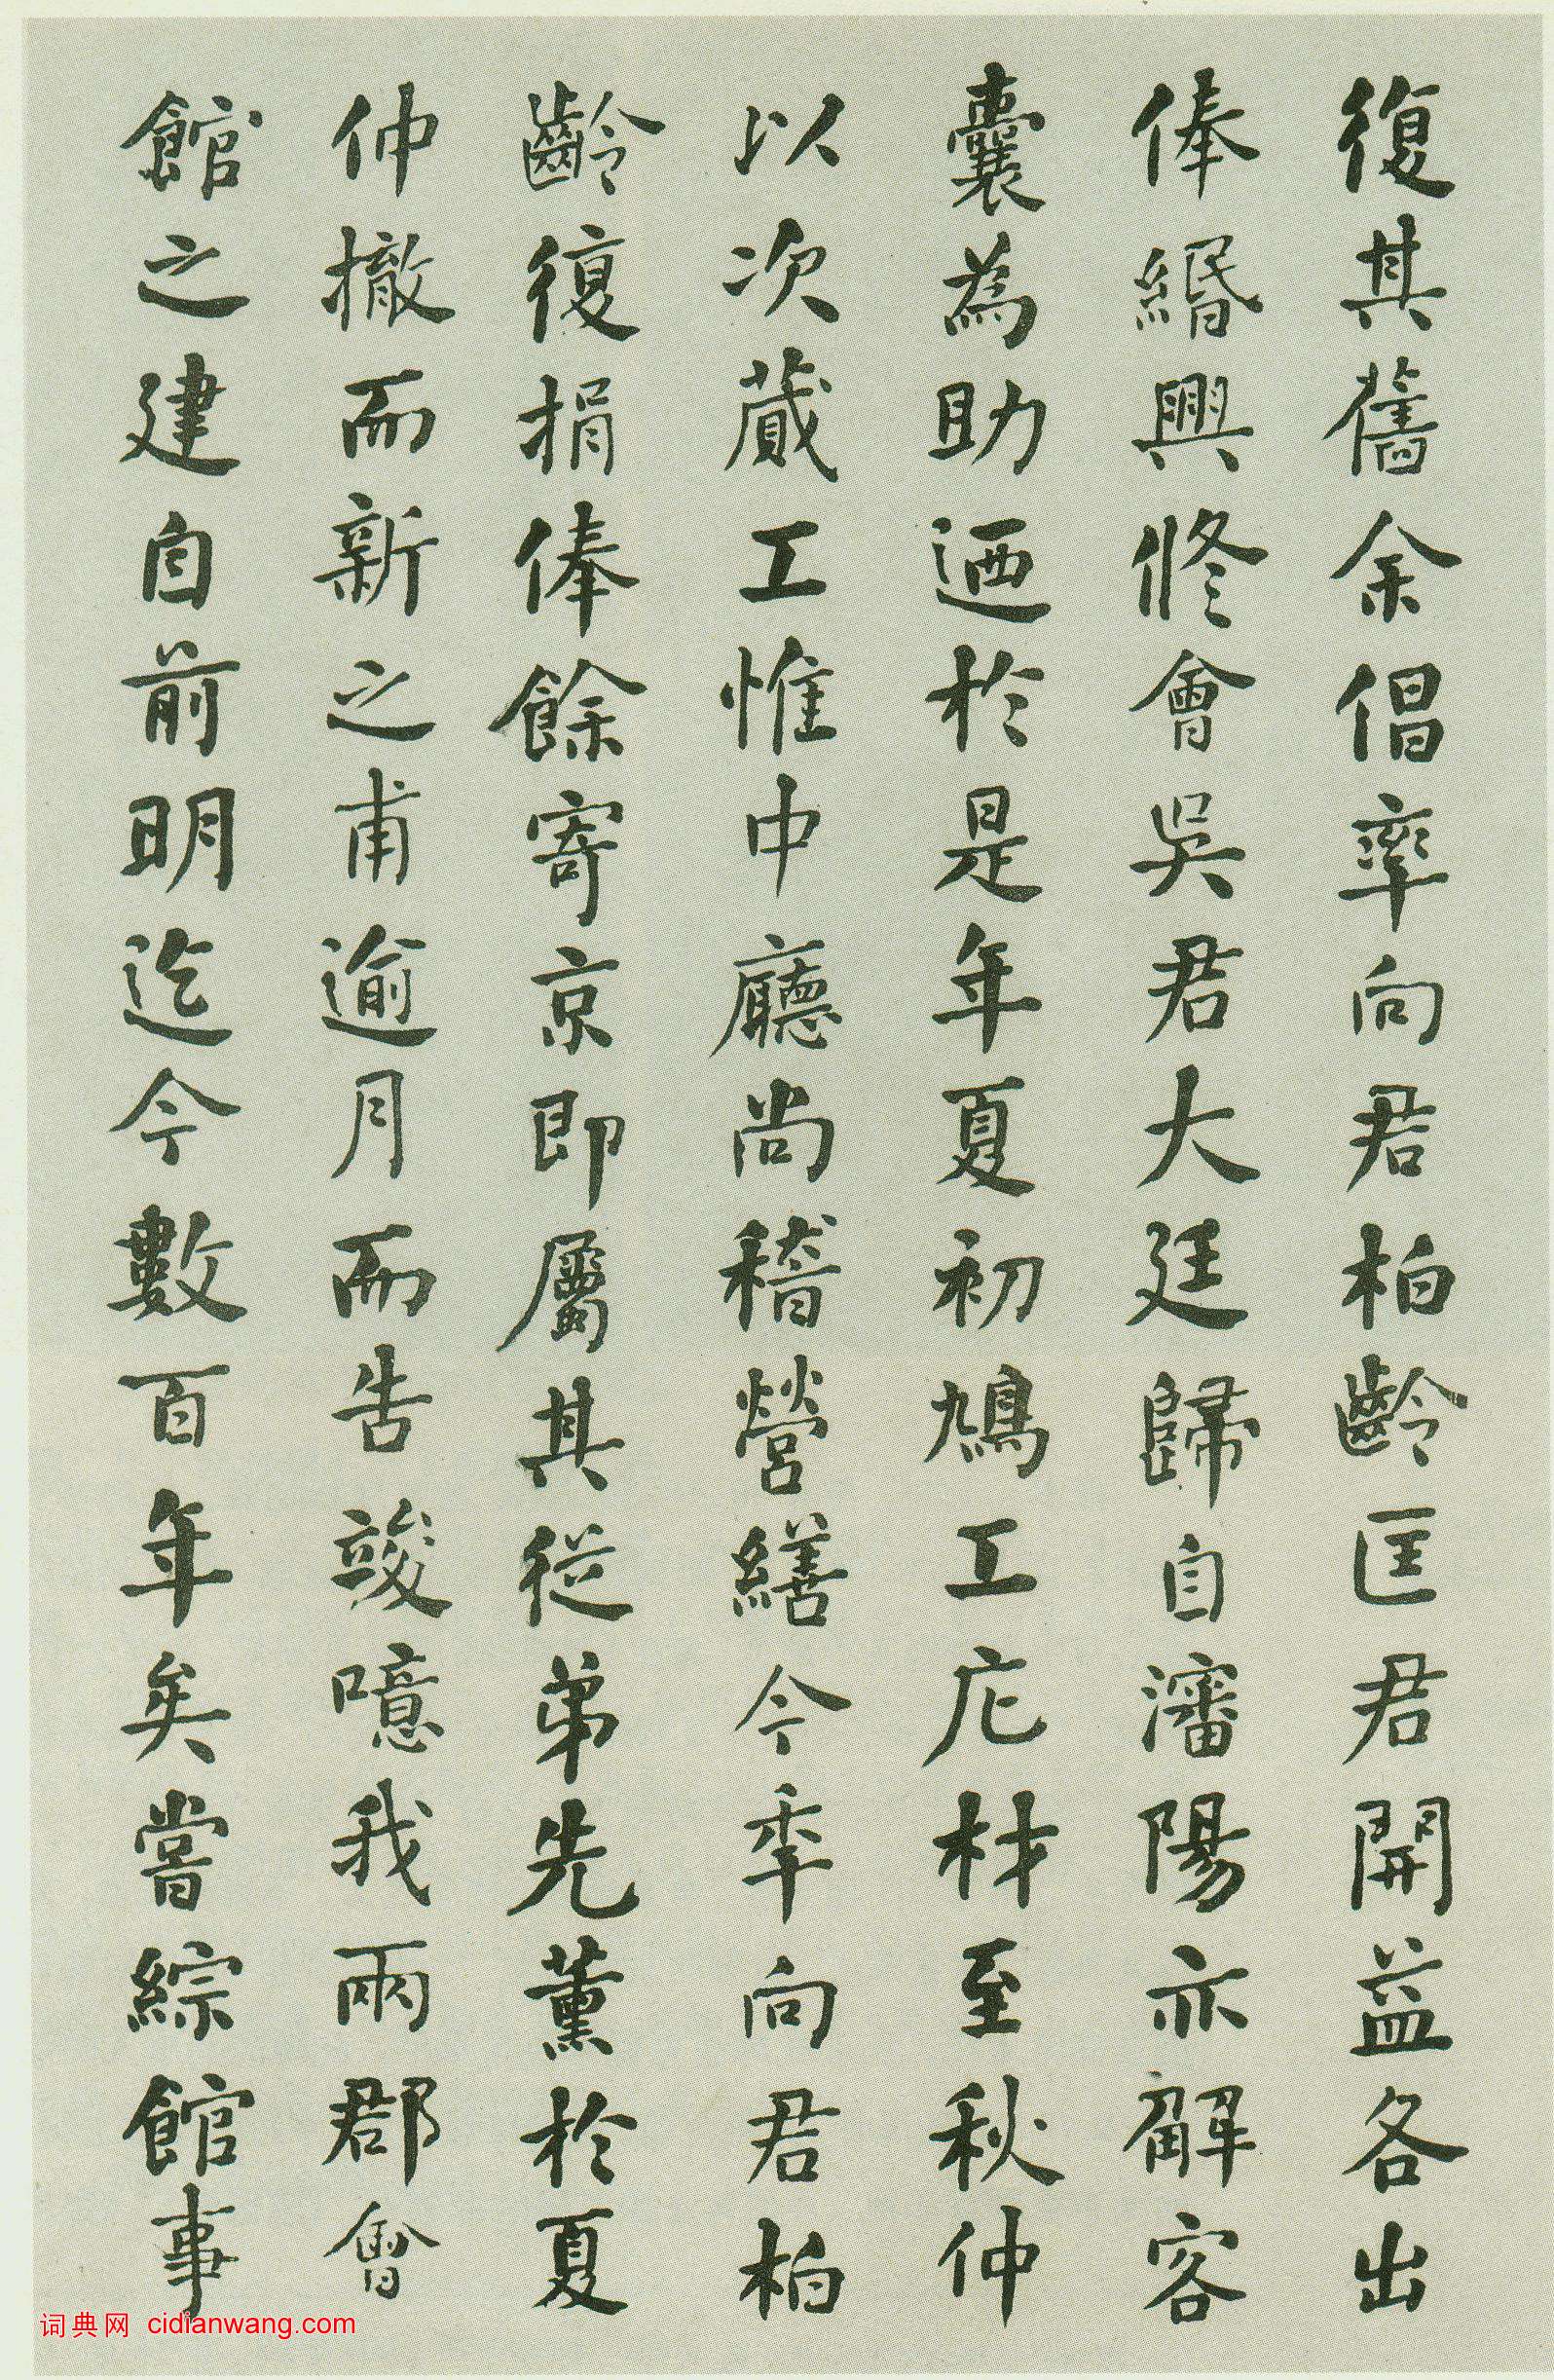 復其舊余倡率向君柏齡匡君開益各出
俸緡興修會吳君大廷歸自瀋陽亦解客
囊為助迺於是年夏初鳩工庀材至秋仲
以次蕆工惟中廳尚稽營繕今年向君柏
齡復捐俸餘寄京即屬其從弟先薰於夏
仲撤而新之甫逾月而告竣噫我兩郡會
館之建自前明迄今數百年矣嘗綜館事
词典网 cidianwang.com